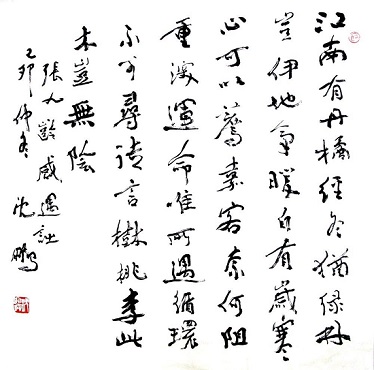 江南有丹橘經冬猶緑林
豈伊地氣暖自有歲寒
心可以薦嘉客奈何阻
重深運命唯所遇循環
不可尋徒言樹桃李此
木豈無陰
張九齡感遇詩
乙卯仲冬沈鵬